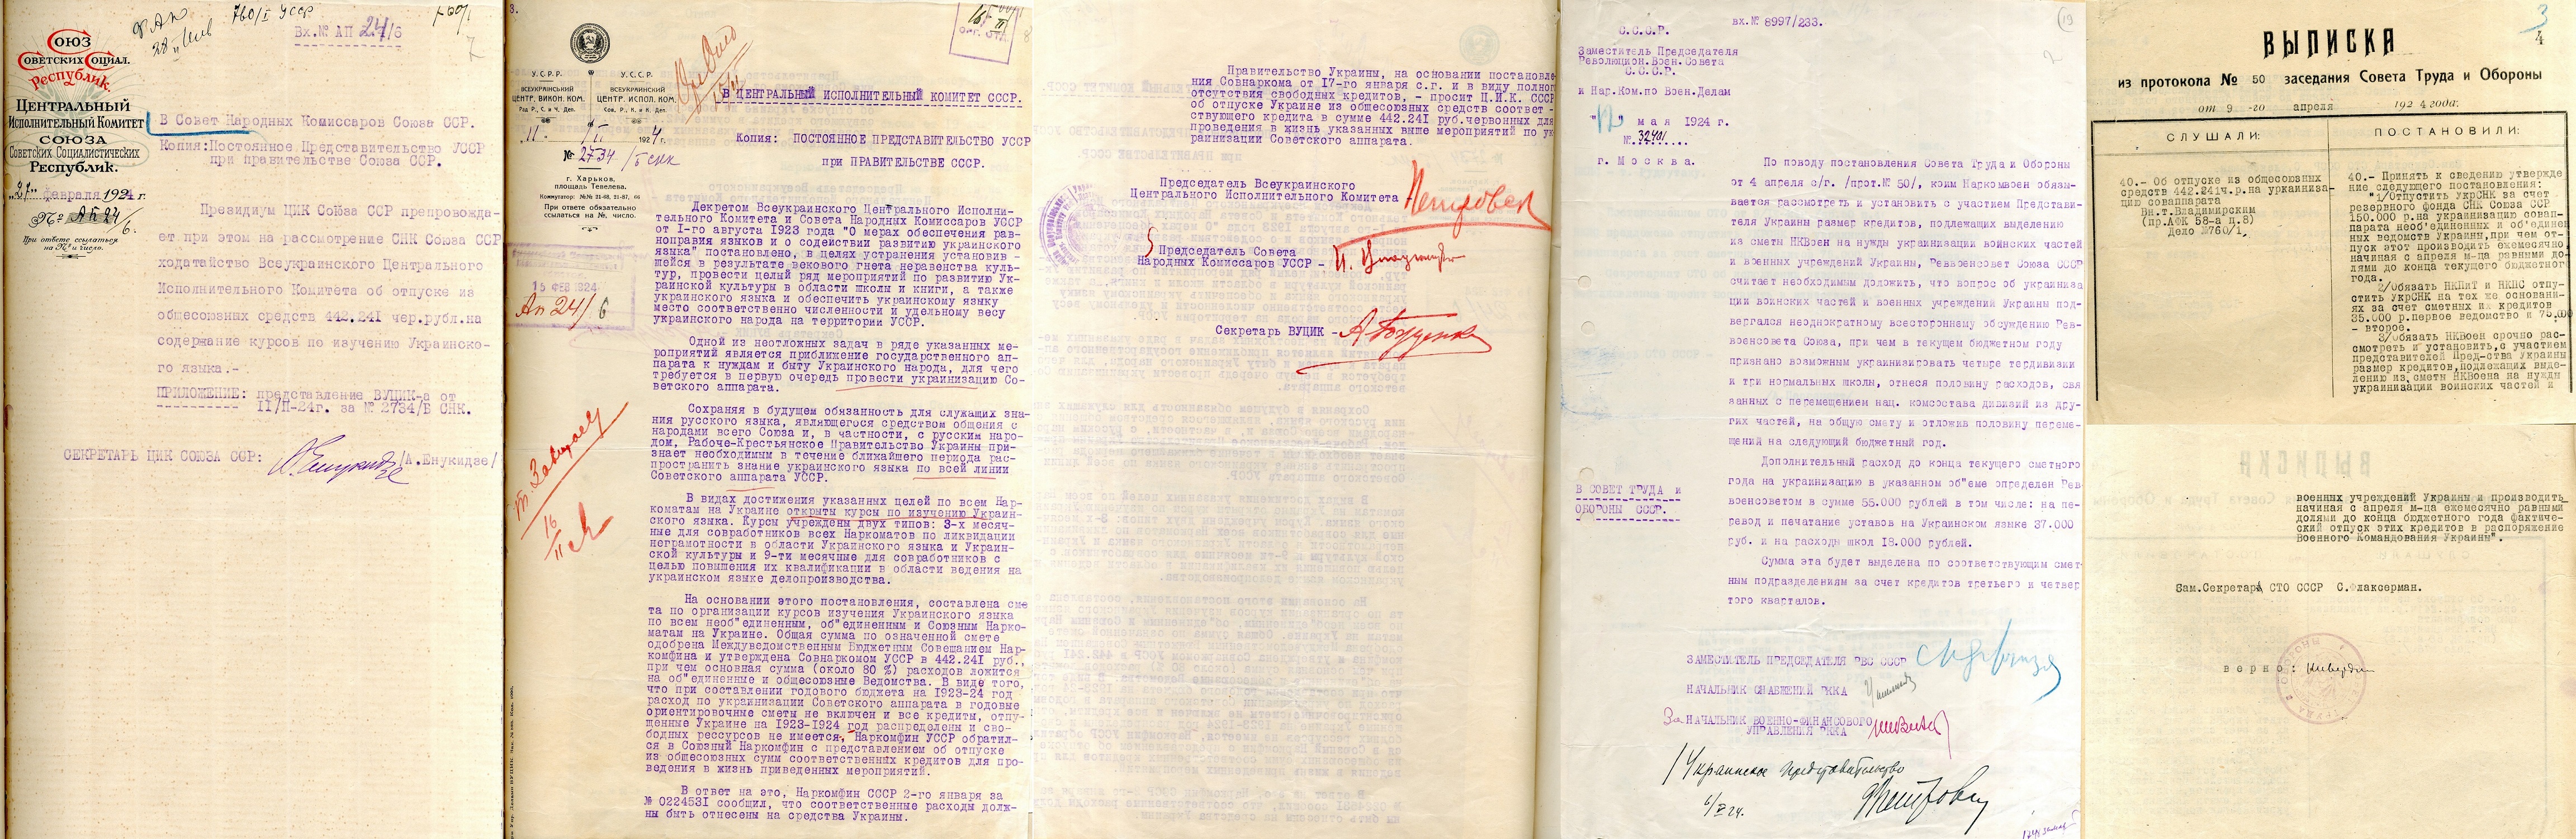 760/I УССР
Вх.№ АП 24/6
СОЮЗ
СОВЕТСКИХ СОЦИАЛ.
Республик.
ЦЕНТРАЛЬНЫЙ
ИСПОЛНИТЕЛЬНЫЙ КОМИТЕТ
СОЮЗА
Советских Социалистических
Республик.
"27" февраля 1924 г.
№ АП 24/6.
При ответе ссылаться
на № и число.
В Совет Народных Комиссаров Союза ССР.
Копия:Постоянное Представительство УССР
при правительстве Союза ССР.
Президиум ЦИК Союза ССР препровожда-
ет при этом на рассмотрение СНК Союза ССР
ходатайство Всеукраинского Центрального
Исполнительного Комитета об отпуске из
общесоюзных средств 442.241 чер.рубл.на
содержание курсов по изучению Украинско-
го языка.-
ПРИЛОЖЕНИЕ: представление ВУЦИК-а от
II/II-24г. за № 2734/Б СНК.
СЕКРЕТАРЬ ЦИК СОЮЗА ССР: /А.Енукидзе/
3.
У.С.Р.Р.
ВСЕУКРАЇНСЬКИЙ
ЦЕНТР. ВИКОН. КОМ.
Рад Р., С. и Ч. Деп.
У.С.С.Р.
ВСЕУКРАИНСКИЙ
ЦЕНТР. ИСПОЛ. КОМ.
Сов. Р., К. и К. Деп.
11 II 1924 г.
№ 2734/Б снк
г. Харьков.
площадь Тевелева.
Коммутатор: №№ 21-68, 21-87, 66
При ответе обязательно
ссылаться на №, число.
15 ФЕВ 1924
Ап 24/6
В ЦЕНТРАЛЬНЫЙ ИСПОЛНИТЕЛЬНЫЙ КОМИТЕТ СССР.
Копия: ПОСТОЯННОЕ ПРЕДСТАВИТЕЛЬСТВО УССР
при ПРАВИТЕЛЬСТВЕ СССР.
Декретом Всеукраинского Центрального Исполни-
тельного Комитета и Совета Народных Комиссаров УССР
от I-го августа 1923 года "О мерах обеспечения рав-
ноправия языков и о содействии развитию украинского
языка" постановлено, в целях устранения установив -
шейся в результате векового гнета неравенства куль-
тур, провести целый ряд мероприятий по развитию Ук-
раинской культуры в области школы и книги, а также
украинского языка и обеспечить украинскому языку
место соответственно численности и удельному весу
украинского народа на территории УССР.
Одной из неотложных задач в ряде указанных ме-
роприятий является приближение государственного ап-
парата к нуждам и быту Украинского Народа, для чего
требуется в первую очередь провести украинизацию Со-
ветского аппарата.
Сохраняя в будущем обязанность для служащих зна-
ния русского языка, являющегося средством общения с
народами всего Союза и, в частности, с русским наро-
дом, Рабоче-Крестьянское Правительство Украины при-
знает необходимым в течение ближайшего периода рас-
пространить знание украинского языка по всей линии
Советского аппарата УССР.
В видах достижения указанных целей по всем Нар-
коматам на Украине открыты курсы по изучению Украин-
ского языка. Курсы учреждены двух типов: 3-х месяч-
ные для совработников всех Наркоматов по ликвидации
неграмотности в области Украинского языка и Украин-
ской культуры и 9-ти месячные для совработников с
целью повышения их квалификации в области ведения на
украинском языке делопроизводства.
На основании этого постановления, составлена сме
та по организации курсов изучения Украинского языка
по всем необ"единенным, об"единенным и Союзным Нарко-
матам на Украине. Общая сумма по означенной смете
одобрена Междуведомственным Бюджетным Совещанием Нар-
комфина и утверждена Совнаркомом УССР в 442.241 руб.,
при чем основная сумма (около 80 %) расходов ложится
на об"единенные и общесоюзные Ведомства. В виде того,
что при составлении годового бюджета на 1923-24 год
расход по украинизации Советского аппарата в годовые
ориентировочные сметы не включен и все кредиты, отпу-
щенные Украине на 1923-1924 год распределены и сво-
бодных рессурсов не имеется, Наркомфин УССР обратил-
ся в Союзный Наркомфин с представлением об отпуске
из общесоюзных сумм соответственных кредитов для про-
ведения в жизнь приведенных мероприятий.
В ответ на это, Наркомфин СССР 2-го января за
№ 0224531 сообщил, что соответственные расходы долж-
ны быть отнесены на средства Украины.
Правительство Украины, на основании постановле
ния Совнаркома от 17-го января с.г. и в виду полног
отсутствия свободных кредитов, - просит Ц.И.К. СССР
об отпуске Украине из общесоюзных средств соответ -
ствующего кредита в сумме 442.241 руб.червонных для
проведения в жизнь указанных выше мероприятий по ук
раинизации Советского аппарата.
Председатель Всеукраинского
Центрального Исполнительного Комитета
Председатель Совета
Народных Комиссаров УССР -
Секретарь ВУЦИК -
вх.№ 8997/233.
С.С.С.Р.
Заместитель Председателя
Революцион.Воен.Совета
С.С.С.Р.
и Нар.Ком.по Воен.Делам
"12" мая 1924 г.
№.32401....
г. Москва.
В СОВЕТ ТРУДА и
ОБОРОНЫ СССР.
По поводу постановления Совета Труда и Обороны
от 4 апреля с/г. /прот.№ 50/, коим Наркомвоен обязы-
вается рассмотреть и установить с участием Представи-
теля Украины размер кредитов, подлежащих выделению
из сметы НКВоен на нужды украинизации войсковых частей
и военных учреждений Украины, Реввоенсовет Союза СССР
считает необходимым доложить, что вопрос об украиниза
ции воинских частей и военных учреждений Украины под-
вергался неоднократному всестороннему обсуждению Рев-
военсовета Союза, при чем в текущем бюджетном году
признано возможным украинизировать четыре тердивизии
и три нормальных школы, отнеся половину расходов, свя
занных с перемещением нац. комсостава дивизий из дру-
гих частей, на общую смету и отложив половину переме-
щений на следующий бюджетный год.
Дополнительный расход до конца текущего сметного
года на украинизацию в указанном об"еме определен Рев
военсоветом в сумме 55.000 рублей в том числе: на пе-
ревод и печатание уставов на Украинском языке 37.000
руб. и на расходы школ 18.000 рублей.
Сумма эта будет выделена по соответствующим смет
ным подразделениям за счет кредитов третьего и четвер
того кварталов.
ЗАМЕСТИТЕЛЬ ПРЕДСЕДАТЕЛЯ РВС СССР
НАЧАЛЬНИК СНАБЖЕНИЙ РККА
За НАЧАЛЬНИК ВОЕННО-ФИНАНСОВОГО
УПРАВЛЕНИЯ РККА
Украинское Представительство
3
4
ВЫПИСКА
из протокола № 50 заседания Совета Труда и Обороны
от 9 -го апреля 1924 года.
СЛУШАЛИ:
40.- Об отпуске из общесоюзных
средств 442.241ч.р.на украиниза-
цию соваппарата
Вн.т.Владимирским
(пр.АФК 58-а п.8)
Дело №760/1.
ПОСТАНОВИЛИ:
40.- Принять к сведению утвержде
ние следующего постановления:
"1/Отпустить УкрСНК за счет
резервного фонда СНК Союза ССР
150.000 р.на украинизацию совап-
парата необ'единенных и об'единен
ных ведомств Украины,при чем от-
пуск этот производить ежемесячно,
начиная с апреля м-ца равными до-
лями до конца текущего бюджетног
года.
2/Обязать НКПиТ и НКПС отпу-
стить УкрСНК на тех же основани-
ях за счет сметных их кредитов
35.000 р.первое ведомство и 75.000
- второе.
3/Обязать НКВоен срочно рас-
смотреть и установить,с участием
представителей Пред-ства Украины
размер кредитов,подлежащих выде-
лению из сметы НКВоена на нужды
украинизации воинских частей и
военных учреждений Украины и производить
начиная с апреля м-ца ежемесячно равными
долями до конца бюджетного года фактиче-
ский отпуск этих кредитов в распоряжение
Военного Командования Украины".
Зам.Секретаря СТО СССР С.Флаксерман.
верно: